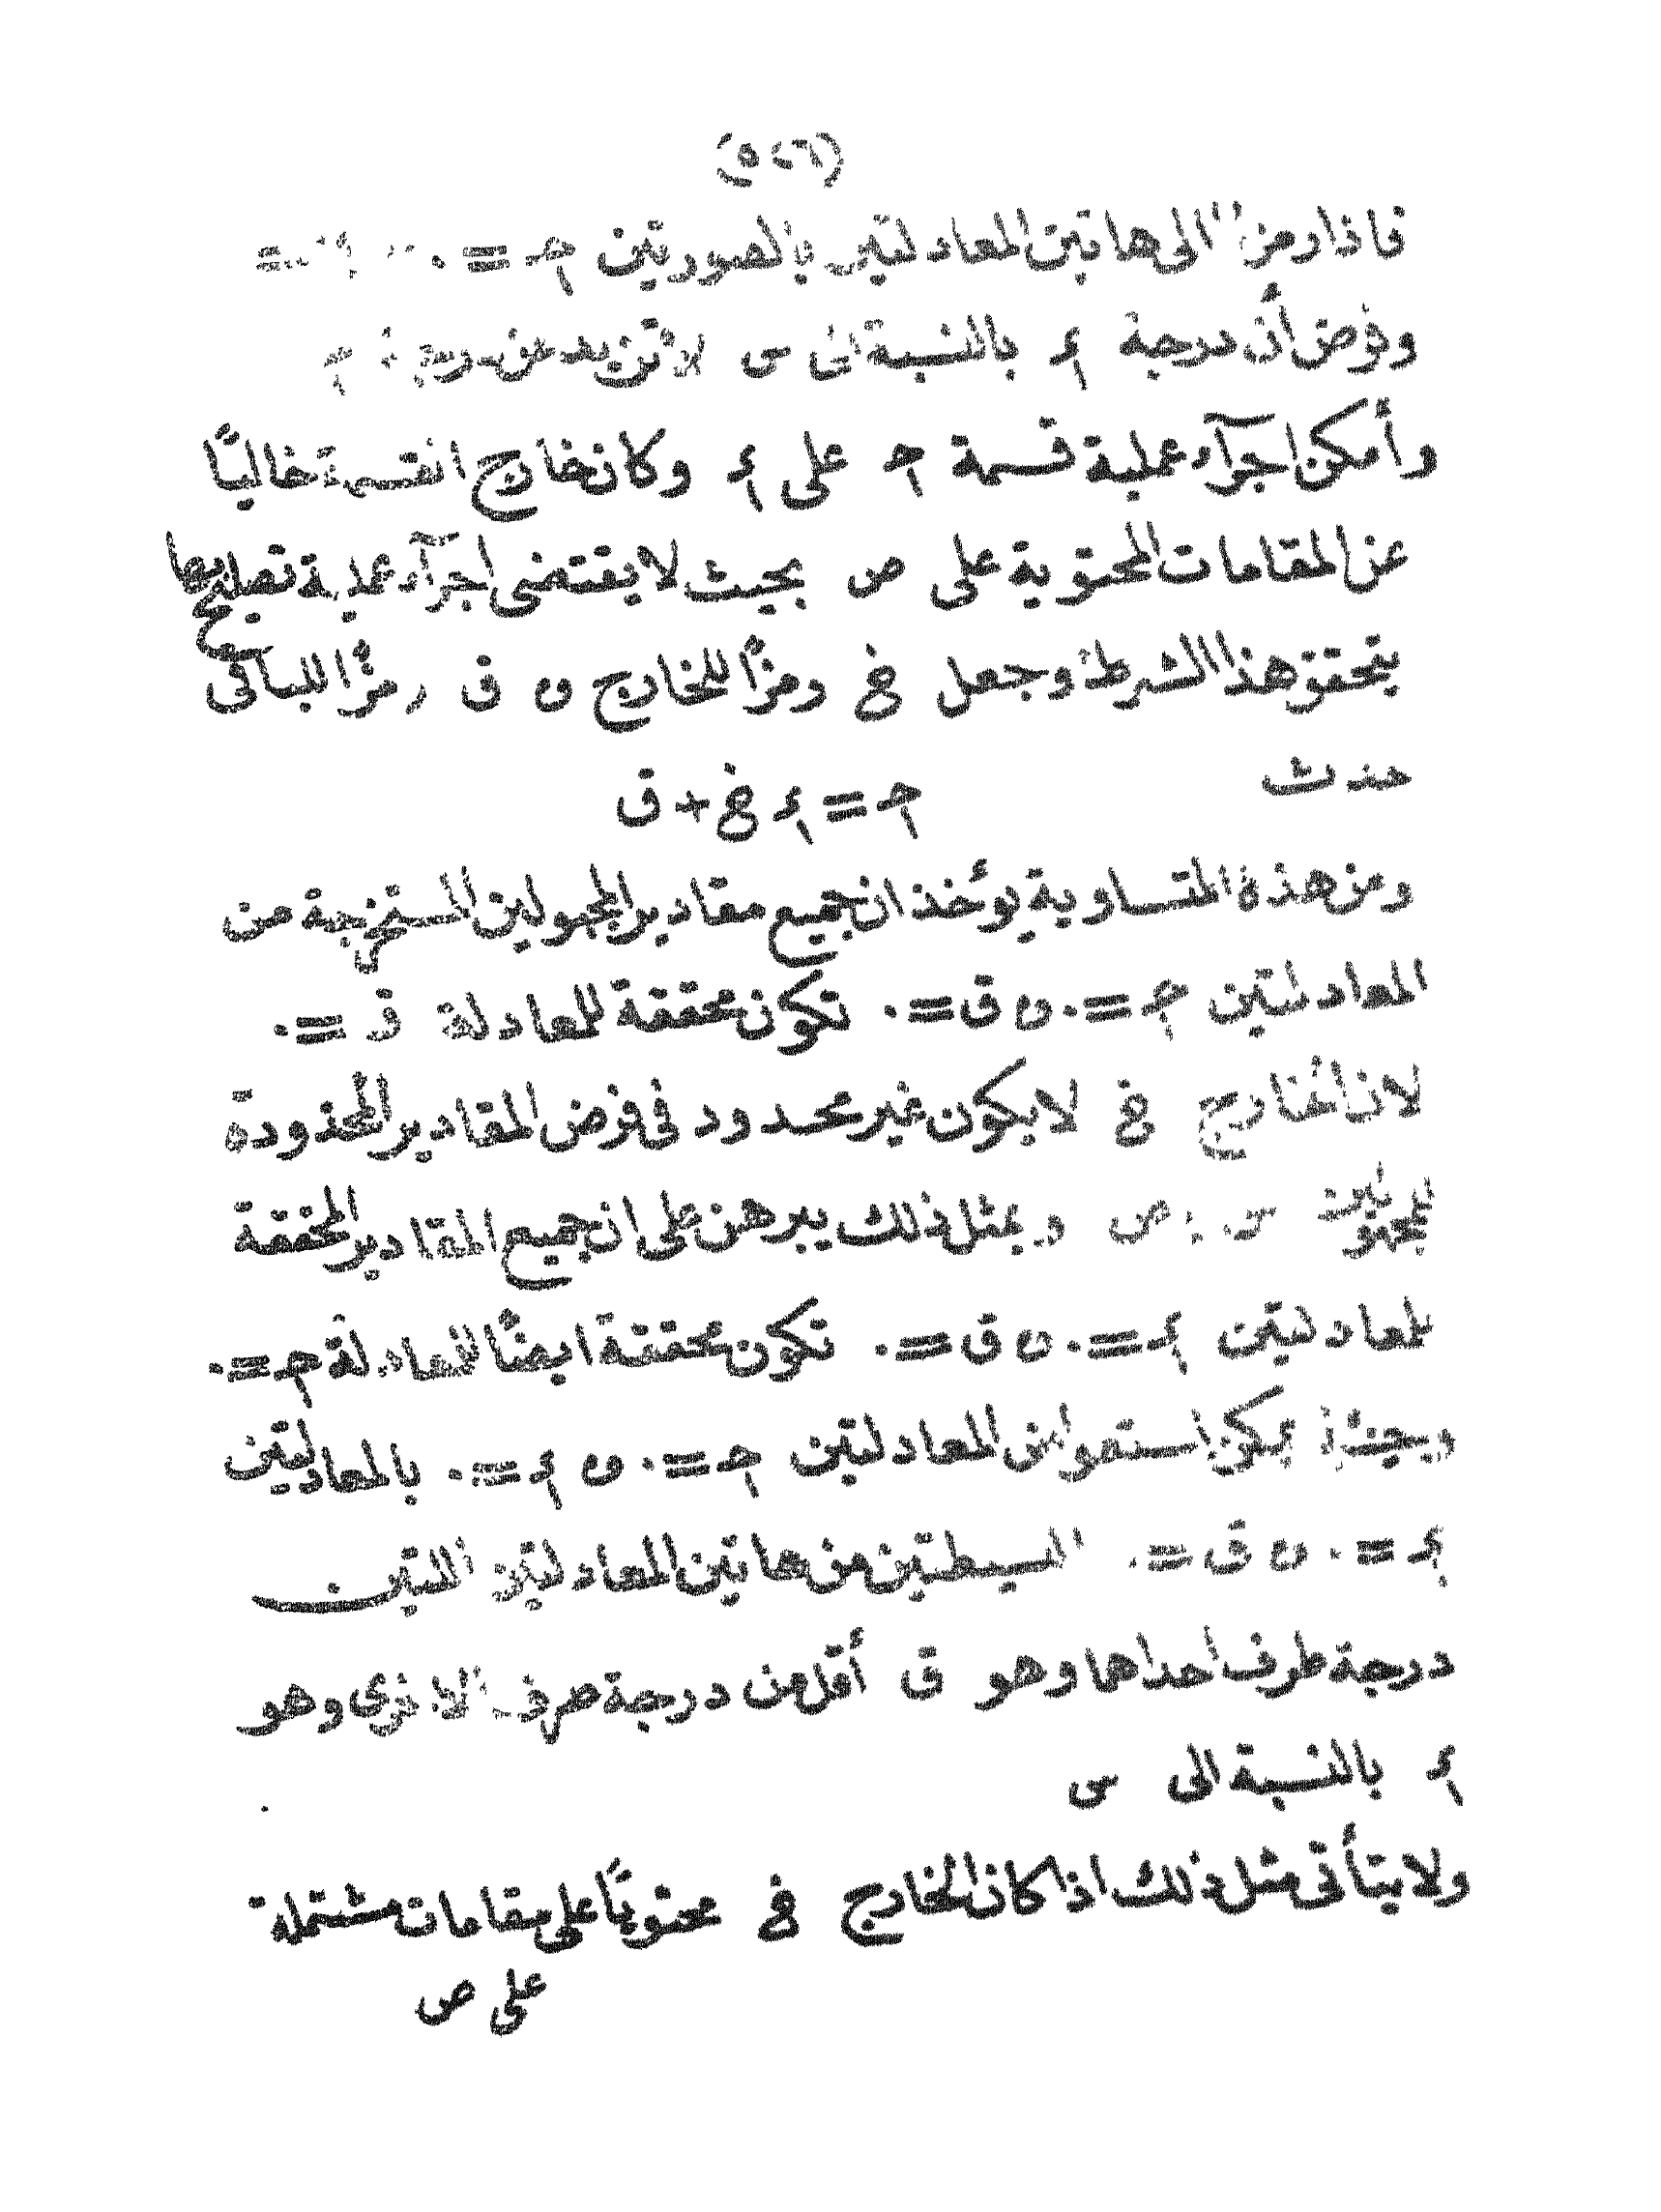 (٥٢٦)
فاذا رمزنا الى هاتين المعادلتين بالصورتين حـ = ٠
وفرض أن درجة ء بالنسبة الى س لا تزيد عن درجة حـ
وأمكن اجرآء عملية قسمة حـ على ء وكان خارج القسمة خاليًا
عن المقامات المحتوية على ص بحيث لا يقتضى اجرآء عملية تصليح بها
يتحقق هذا الشرط وجعل خ رمزًا للخارج و ق رمزًا للباقى
حدث حـ = ء خ + ق
ومن هذه المتساوية يؤخذ ان جميع مقادير المجهولين المستخرجة من
المعادلتين حـ = ٠ و ق = ٠ تكون محققة للمعادلة ق = ٠
لان الخارج خ لا يكون غير محدود فى فرض المقادير المحدودة
للمجهولين س و ص وبمثل ذلك يبرهن على ان جميع المقادير المحققة
للمعادلتين ء = ٠ و ق = ٠ تكون محققة ايضًا للمعادلة حـ = ٠
وحينئذ يمكن استعواض المعادلتين حـ = ٠ و ء = ٠ بالمعادلتين
ء = ٠ و ق = ٠ البسيطتين من هاتين المعادلتين اللتين
درجة طرف احداهما وهو ق أقل من درجة طرف الاخرى وهو
ء بالنسبة الى س
ولا يتأتى مثل ذلك اذا كان الخارج خ محتويًا على مقامات مشتملة
على ص